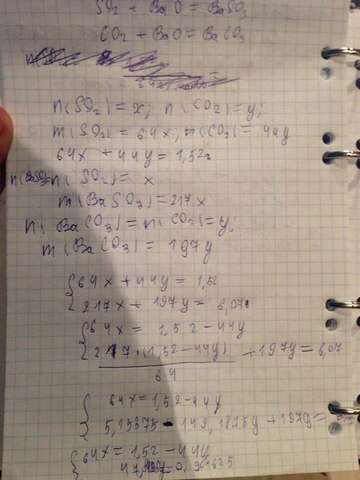 SO₂ + BaO = BaSO₃
CO₂ + BaO = BaCO₃
n(SO₂) = x; n(CO₂) = y;
m(SO₂) = 64x; m(CO₂) = 44y
64x + 44y = 1,52г
n(SO₂) = x
m(BaSO₃) = 217x
n(BaCO₃) = n(CO₂) = y;
m(BaCO₃) = 197y
{64x + 44y = 1,52
217x + 197y = 6,07
{64x = 1,52 - 44y
217·(1,52 - 44y) / 64 + 197y = 6,07
{64x = 1,52 - 44y
5,15375 - 149,1875y + 197y =
{64x = 1,52 - 44y